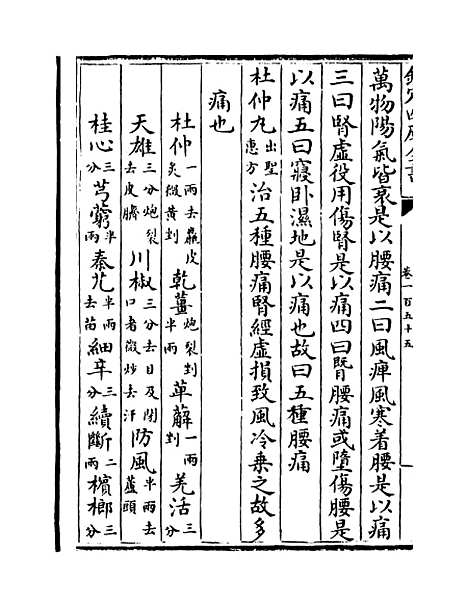 欽定四庫全書
卷一百五十五
萬物陽氣皆衰是以腰痛二曰風痺風寒着腰是以痛
三曰腎虛役用傷腎是以痛四曰㬁腰痛或墮傷腰是
以痛五曰寢卧濕地是以痛也故曰五種腰痛
杜仲丸出聖惠方治五種腰痛腎經虛損致風冷乗之故多
痛也
杜仲一兩去麤皮炙微黄剉 乾薑炮裂剉半兩 萆薢一兩剉 羌活三分
天雄三分炮裂去皮臍 川椒三分去目及閉口者微炒去汗 防風半兩去蘆頭
桂心三分 芎藭半兩 秦艽半兩去苗 細辛三分 續斷二兩 檳榔三分